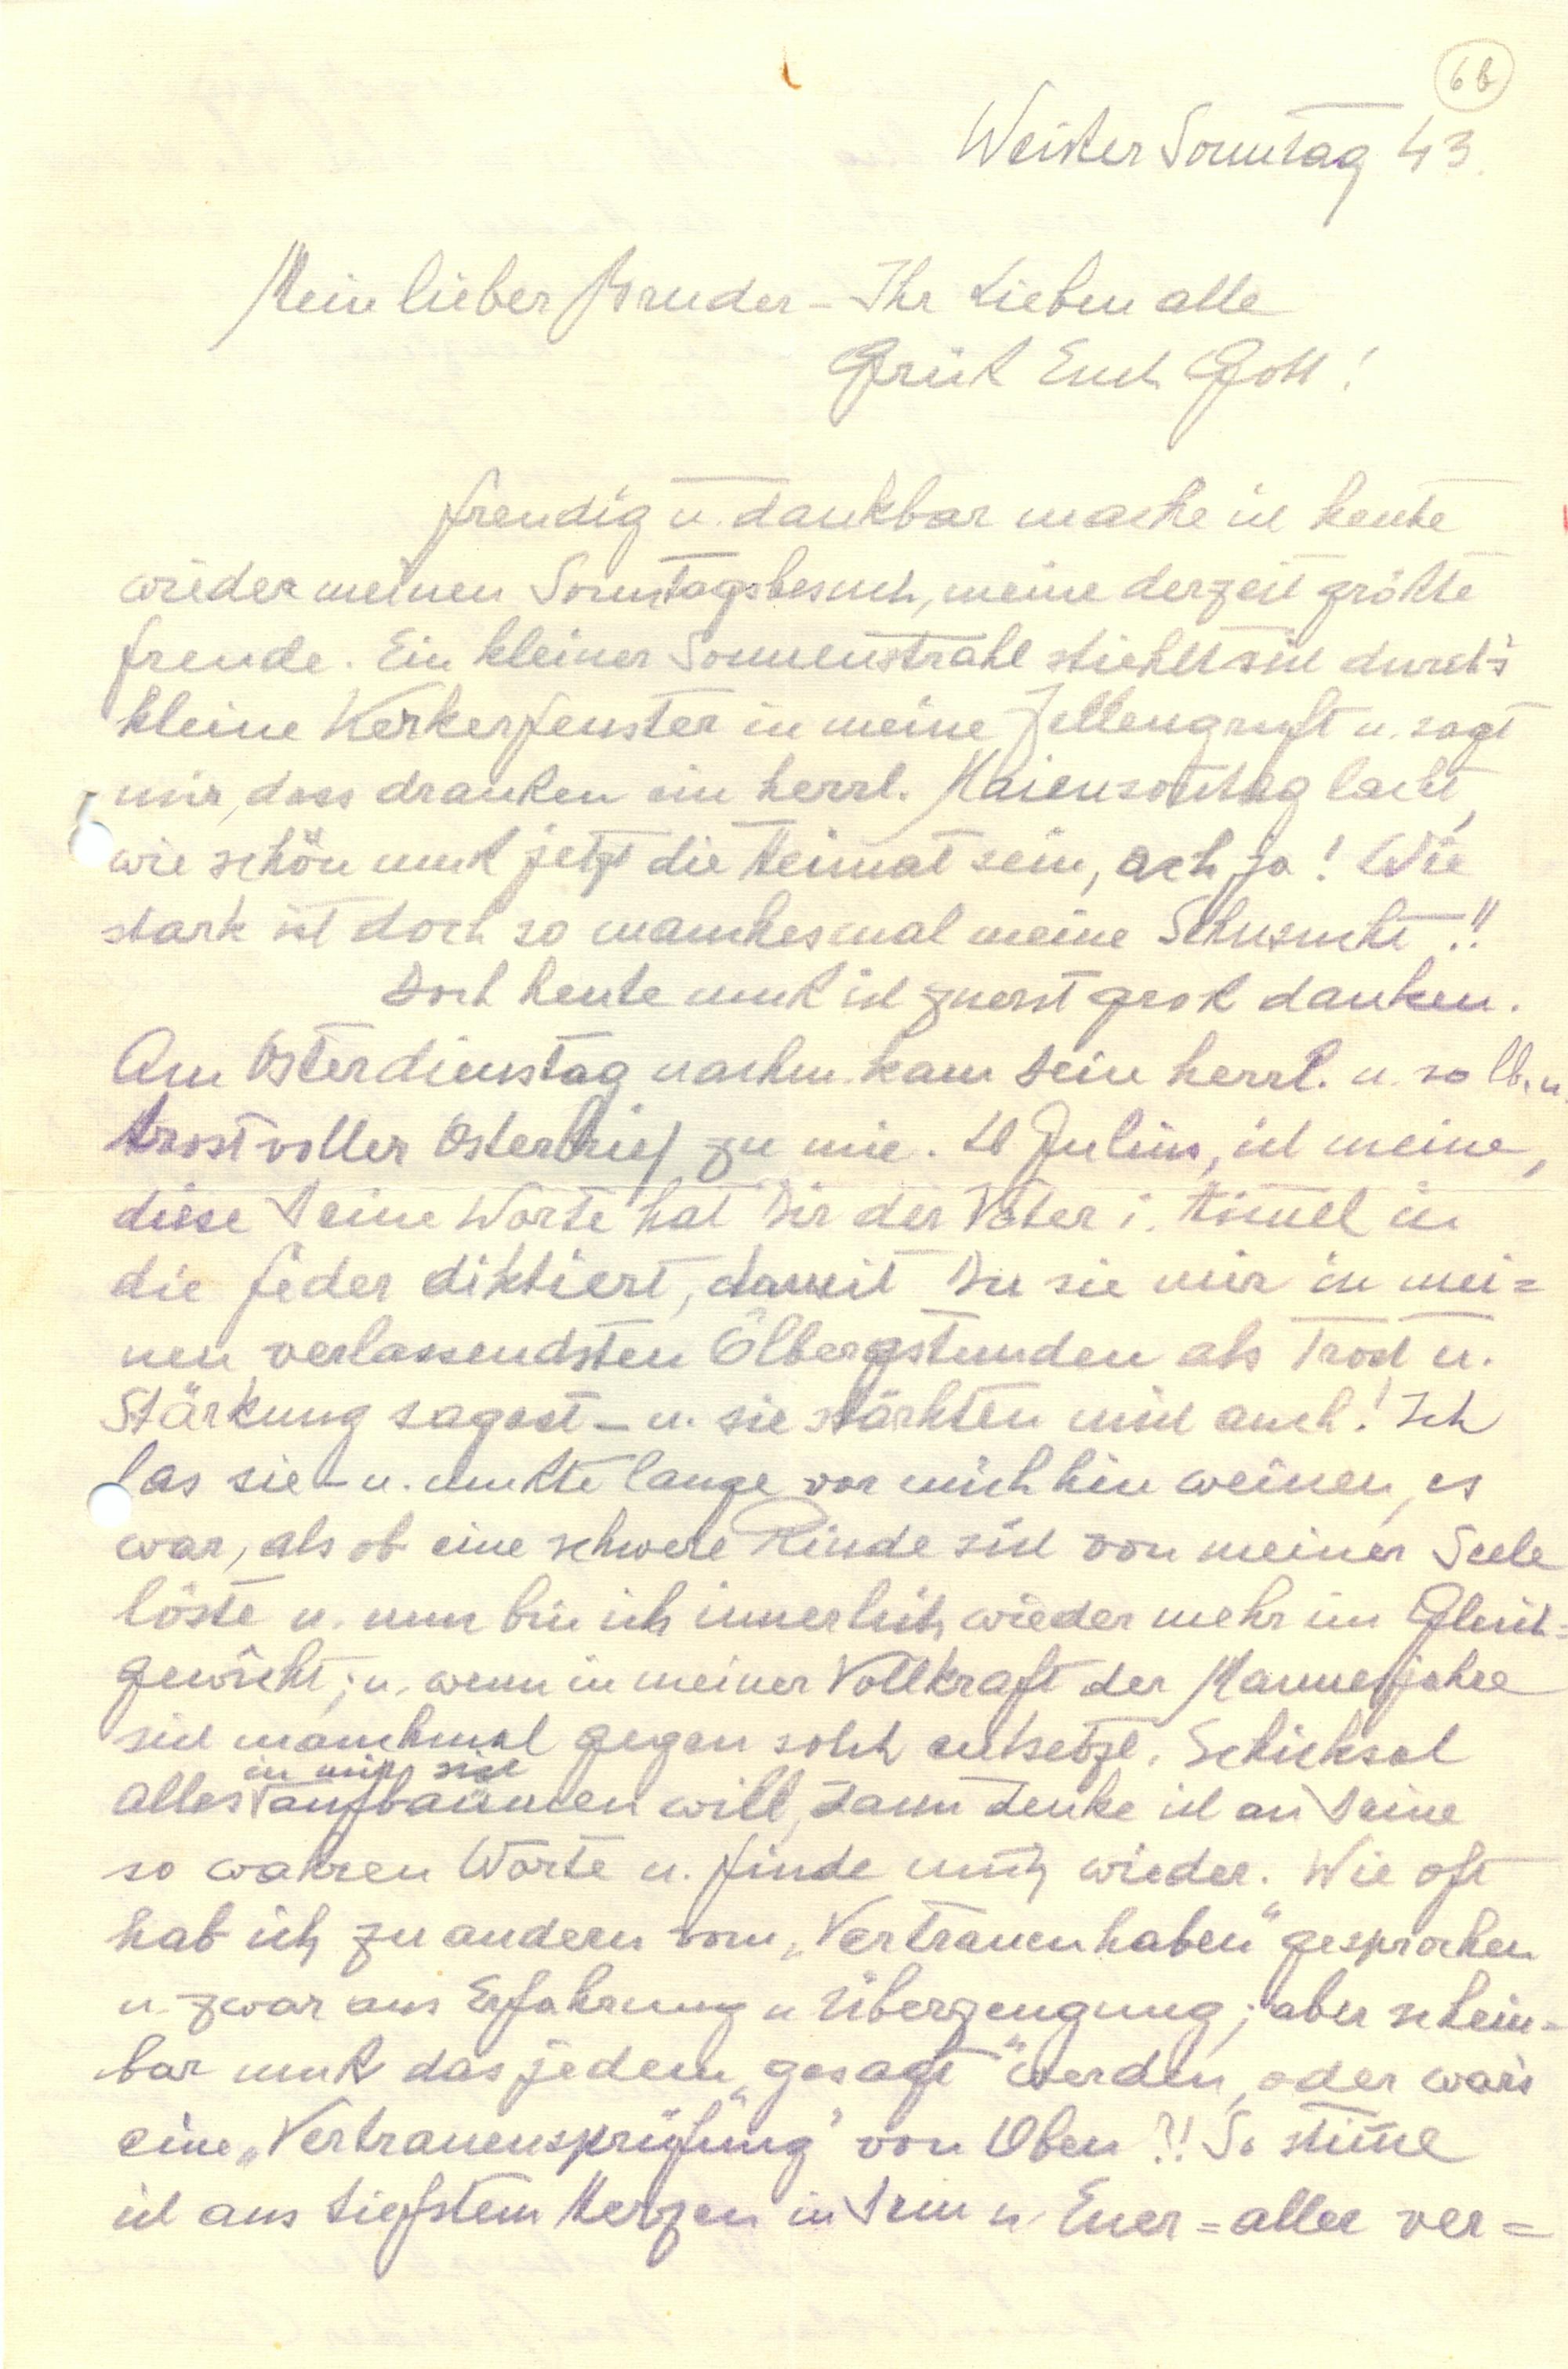 6b
Weißer Sonntag 43.
Mein lieber Bruder – Ihr Lieben alle
Grüß Euch Gott!
Freudig u. dankbar mache ich heute
wieder meinen Sonntagsbesuch, meine derzeit größte
Freude. Ein kleiner Sonnenstrahl stiehlt sich durch's
kleine Kerkerfenster in meine Zellengruft u. sagt
mir, dass draußen ein herrl. Maiensonntag lacht,
wie schön muß jetzt die Heimat sein, ach ja! Wie
stark ist doch so manchesmal meine Sehnsucht!!
Doch heute muß ich zuerst groß danken.
Am Osterdienstag nachm. kam Dein herrl. u. so lb. u.
trostvoller Osterbrief zu mir. Julius, ich meine,
diese Deine Worte hat Dir der Vater i. Himel in
die Feder diktiert, damit Du sie mir in mei=
nen verlassendsten Ölbergstunden als Trost u.
Stärkung sagest – u. sie stärkten mich auch! Ich
las sie – u. mußte lange vor mich hin weinen, es
war, als ob eine schwere Rinde sich von meiner Seele
löste u. nun bin ich innerlich wieder mehr im Gleich=
gewicht; u. wenn in meiner Vollkraft der Mannesjahre
sich manchmal gegen solch entsetzl. Schicksal
alles in mir sich aufbäumen will, dann denke ich an Deine
so wahren Worte u. finde mich wieder. Wie oft
hab ich zu andern vom „Vertrauen haben" gesprochen
u. zwar aus Erfahrung u Überzeugung; aber schein=
bar muß das jedem „gesagt" werden, oder war's
eine „Vertrauensprüfung" von Oben?!! So stime
ich aus tiefstem Herzen in Dein u. Euer = aller ver=